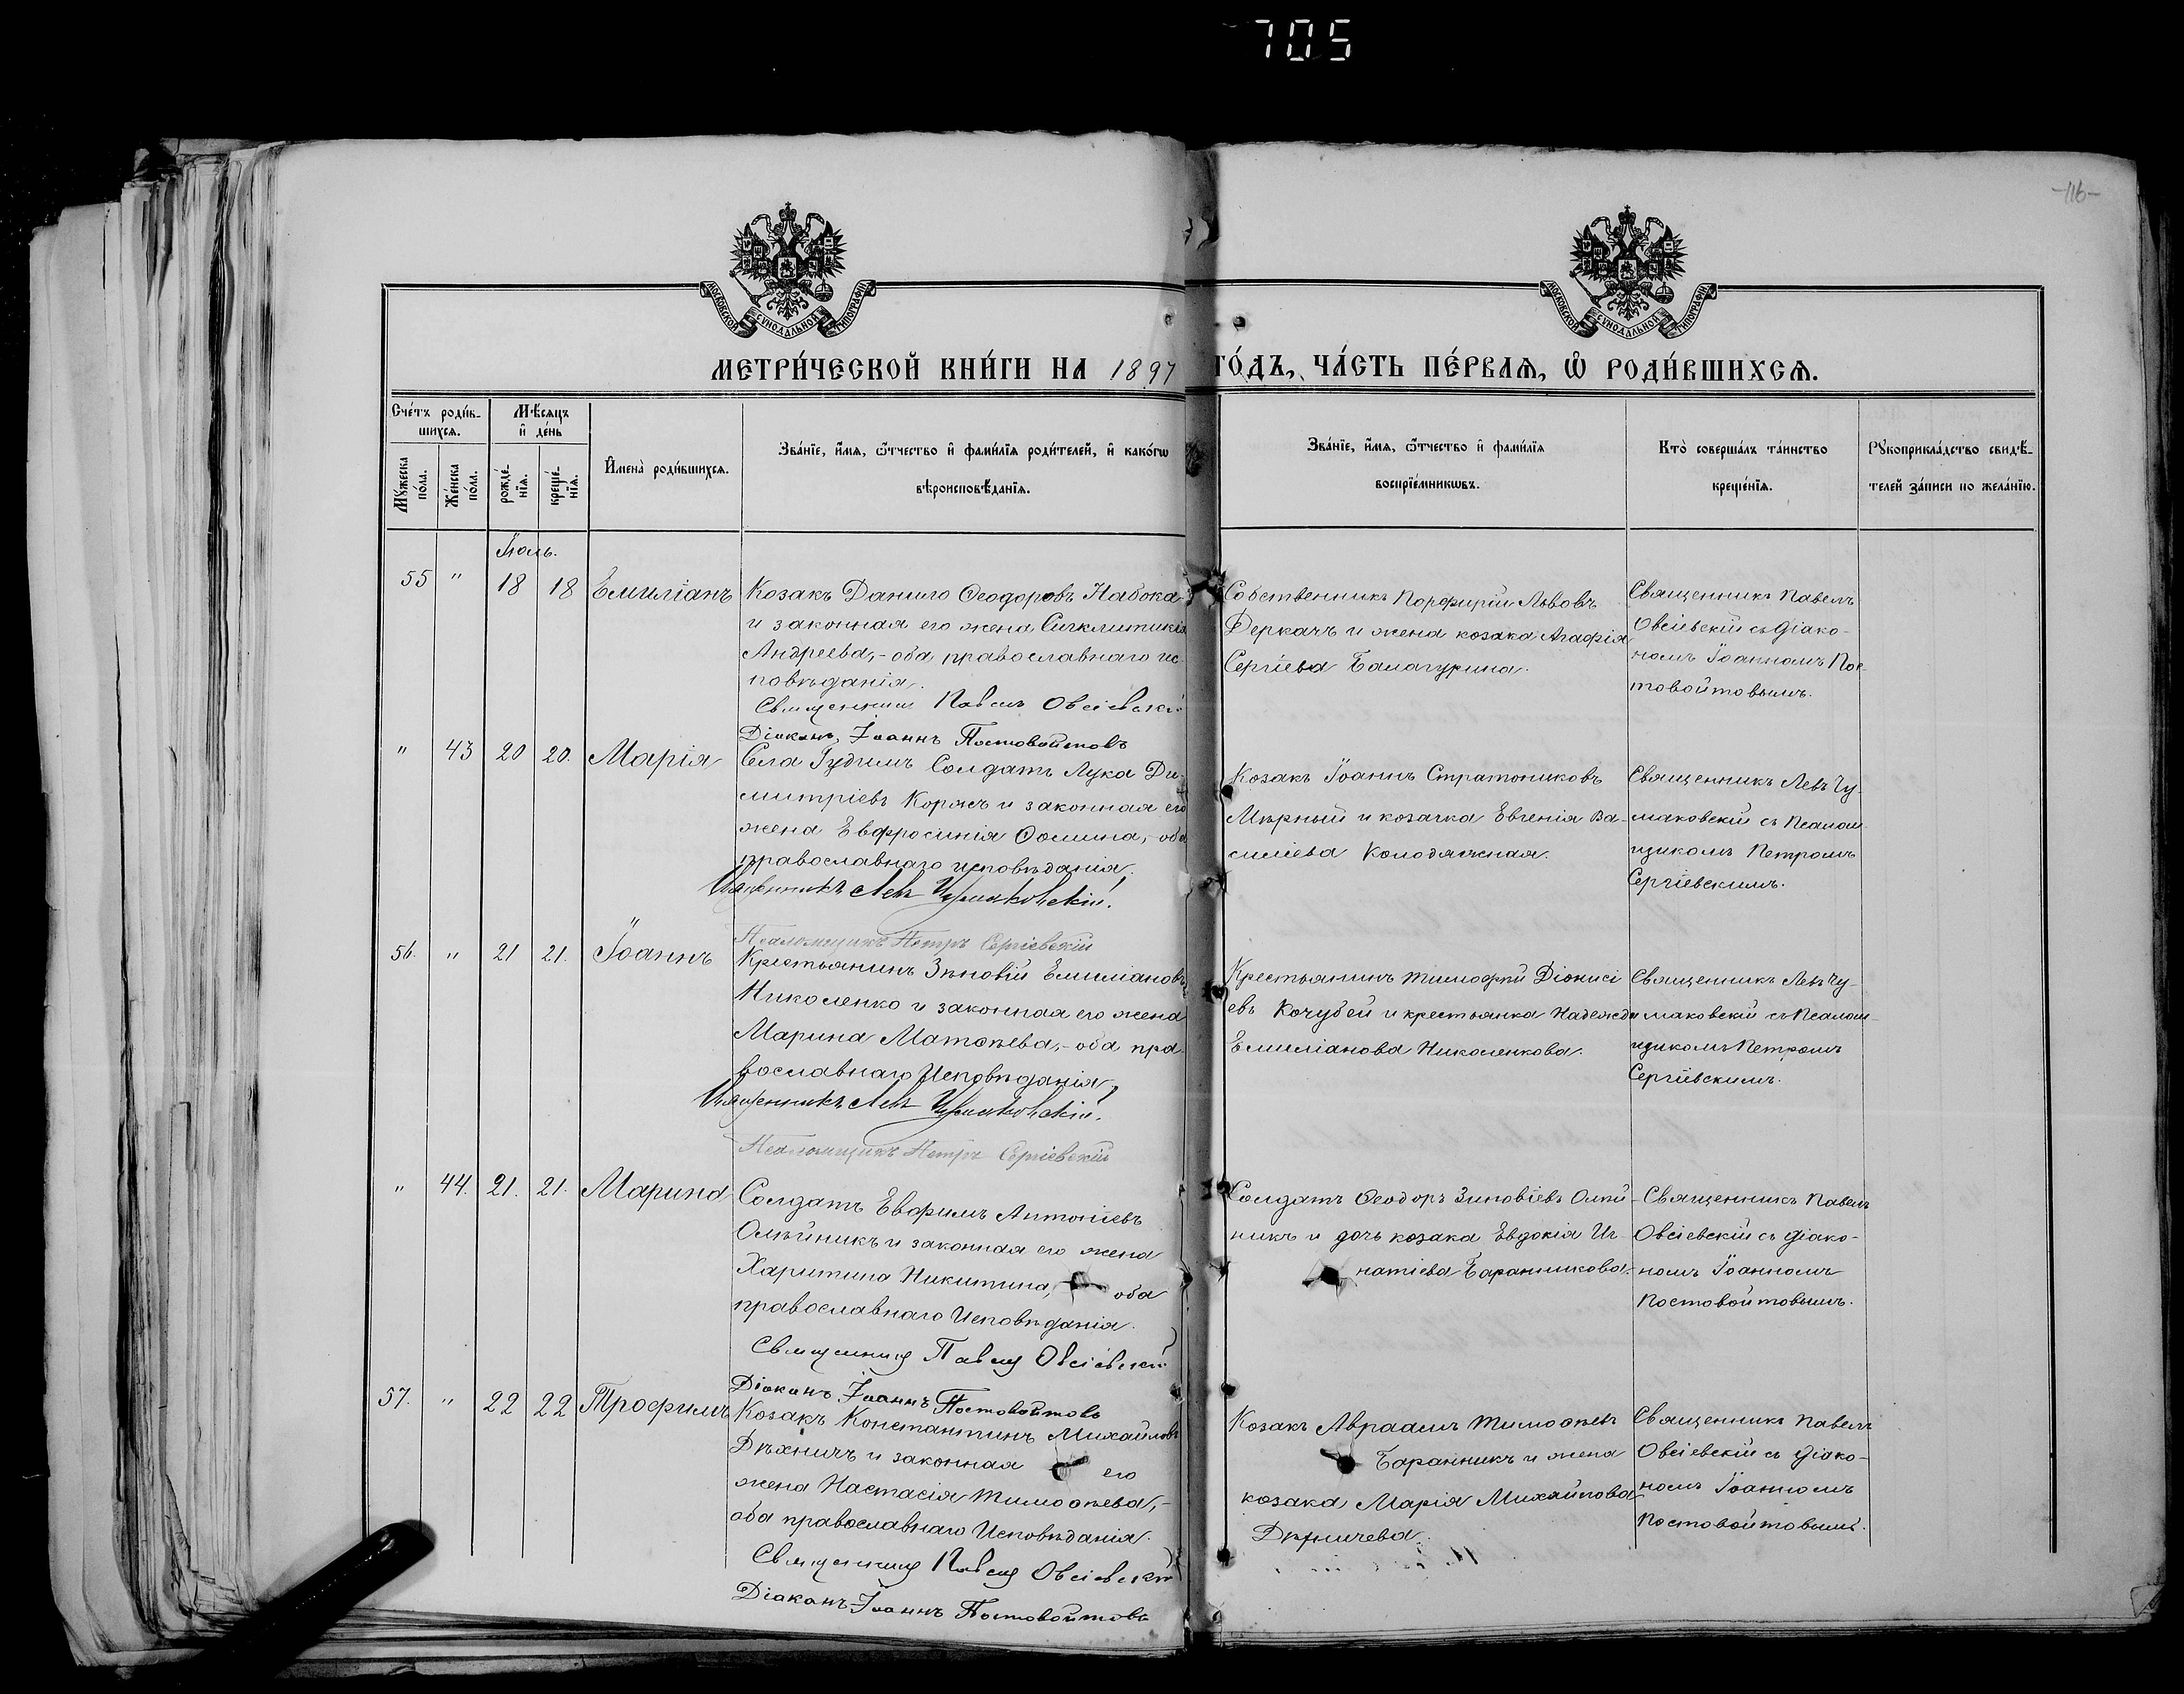 705
-116-
МОСКОВСКОЙ СѴНОДАЛЬНОЙ ТИПОГРАФІИ
МОСКОВСКОЙ СѴНОДАЛЬНОЙ ТИПОГРАФІИ
МЕТРИ́ЧЕСКОЙ КНИ́ГИ НА 1897 ГО́ДЪ, ЧА́СТЬ ПЕ́РВАѦ, Ѽ РОДИ́ВШИХСѦ.
Сче́тъ роди́в-
шихсѧ.
Мꙋ́жеска по́ла.
Же́нска по́ла.
Мѣ́сѧцъ
и҆ де́нь
рожде́-
нїѧ.
креще́-
нїѧ.
И҆мена̀ роди́вшихсѧ.
Зва́нїе, и҆́мѧ, ѻ҆́тчество и҆ фами́лїѧ роди́телей, и҆ како́гѡ
вѣроисповѣ́данїѧ.
Зва́нїе, и҆́мѧ, ѻ҆́тчество и҆ фами́лїѧ
воспрїе́мникѡвъ.
Кто̀ соверша́лъ та́инство
креще́нїѧ.
Рꙋкоприкла́дство свидѣ́-
телей за́писи по жела́нїю.
Іюль.
55 " 18 18 Емиліанъ
Козакъ Данило Ѳеодоровъ Набока
и законная его жена Сигклитикія
Андреева,- оба православнаго ис-
повѣданія.
Священникъ Павелъ Овсіевскій
Діаконъ, Іоаннъ Постовойтовъ
Собственникъ Порфирій Львовъ
Деркачъ и жена козака Агафія
Сергіева Балагурина.
Священникъ Павелъ
Овсіевскій съ діако-
номъ Іоанномъ Пос-
товойтовымъ.
" 43 20 20. Марія
Села Гудимъ Солдатъ Лука Ди-
митріевъ Коржъ и законная его
жена Евфросинія Ѳомина,- оба
православнаго исповѣданія.
Священникъ Левъ Чумаковскій.
Псаломщикъ Петръ Сергіевскій
Козакъ Іоаннъ Стратониковъ
Мѣрный и козачка Евгенія Ва-
силіева Колодяжная.
Священникъ Левъ Чу-
маковскій съ Псалом-
щикомъ Петромъ
Сергіевскимъ.
56. " 21 21. Іоаннъ
Крестьянинъ Зѣновій Емиліановъ
Николенко и законная его жена
Марина Матѳѣева,- оба пра-
вославнаго Исповѣданія.
Священникъ Левъ Чумаковскій.
Псаломщикъ Петръ Сергіевскій
Крестьянинъ Тимоѳей Діонисі
евъ Кочубей и крестьянка Надежда
Емиліанова Николенкова.
Священникъ Левъ Чу-
маковскій съ Псалом-
щикомъ Петромъ
Сергіевскимъ.
" 44. 21. 21. Марина
Солдатъ Евфимъ Антоніевъ
Олѣйникъ и законная его жена
Харитина Никитина, оба
православнаго Исповѣданія.
Священникъ Павелъ Овсіевскій
Діаконъ, Іоаннъ Постовойтовъ
Солдатъ Ѳеодоръ Зиновіевъ Олѣй-
никъ и дочь козака Евдокія Иг-
натіева Баранникова.
Священникъ Павелъ
Овсіевскій съ діако-
номъ Іоанномъ
Постовойтовымъ.
57. " 22 22 Трофимъ
Козакъ Константинъ Михайловъ
Дѣхничъ и законная его
жена Настасія Тимоѳѣева,-
оба православнаго Исповѣданія.
Священникъ Павелъ Овсіевскій
Діаконъ Іоаннъ Постовойтовъ
Козакъ Авраамъ Тимоѳѣевъ
Баранникъ и жена
козака Марія Михайлова
Священникъ Павелъ
Овсіевскій съ діако-
номъ Іоанномъ
Постовойтовымъ.